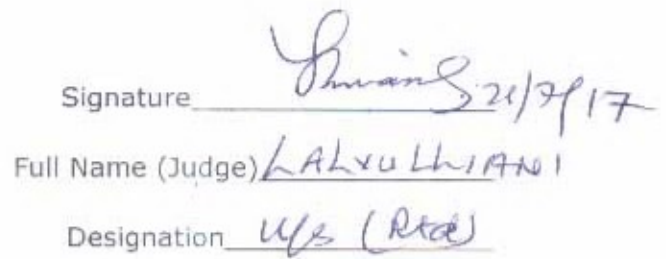 Signature 21/7/17
Full Name (Judge) LALXULLIANI
Designation U/s (Rtd)